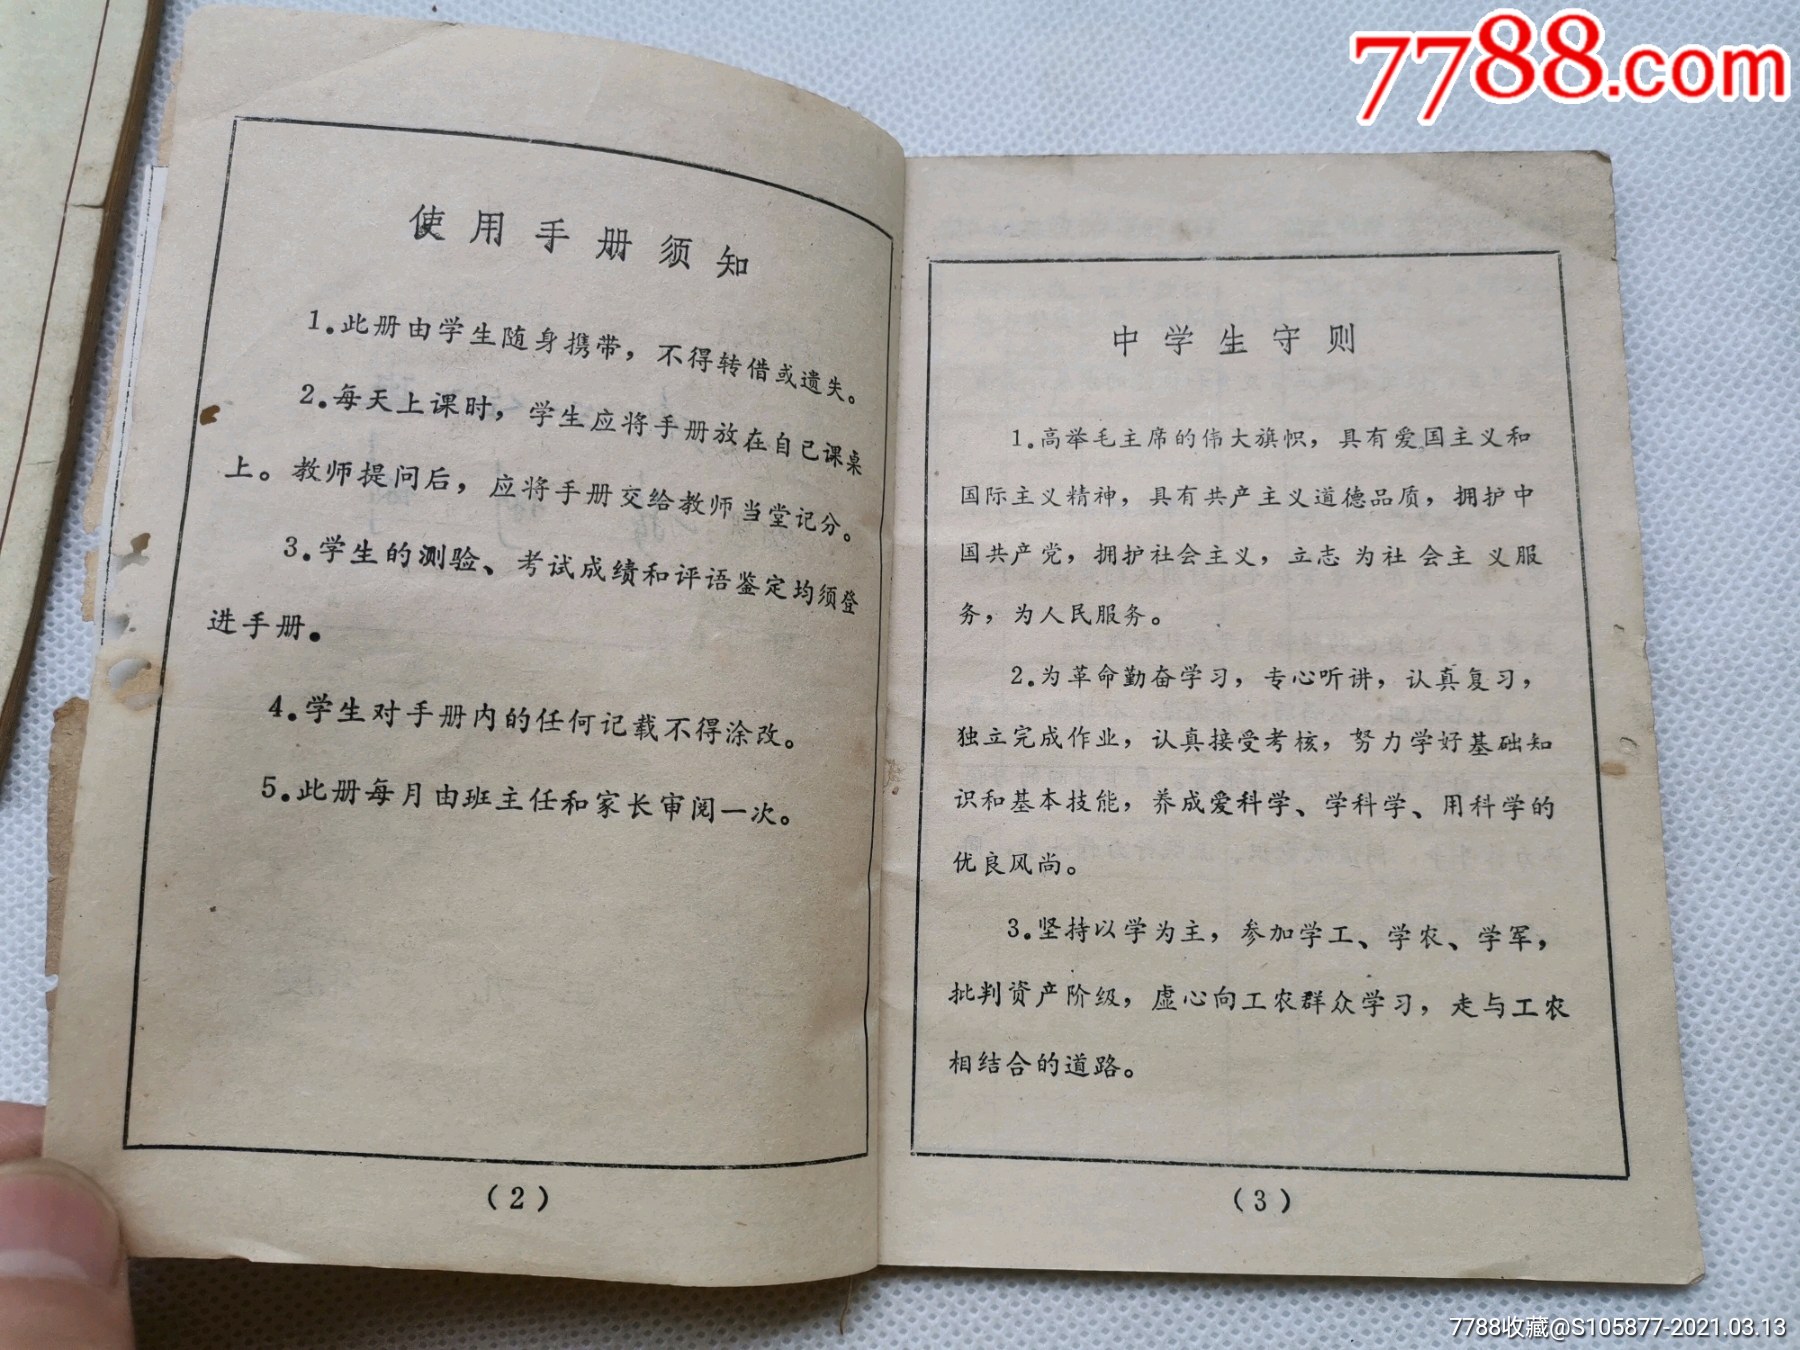 7788.com
使用手册须知
1.此册由学生随身携带，不得转借或遗失。
2.每天上课时，学生应将手册放在自己课桌
上。教师提问后，应将手册交给教师当堂记分。
3.学生的测验、考试成绩和评语鉴定均须登
进手册。
4.学生对手册内的任何记载不得涂改。
5.此册每月由班主任和家长审阅一次。
(2)
中学生守则
1.高举毛主席的伟大旗帜，具有爱国主义和
国际主义精神，具有共产主义道德品质，拥护中
国共产党，拥护社会主义，立志为社会主义服
务，为人民服务。
2.为革命勤奋学习，专心听讲，认真复习，
独立完成作业，认真接受考核，努力学好基础知
识和基本技能，养成爱科学、学科学、用科学的
优良风尚。
3.坚持以学为主，参加学工、学农、学军，
批判资产阶级，虚心向工农群众学习，走与工农
相结合的道路。
(3)
7788收藏@S105877-2021.03.13